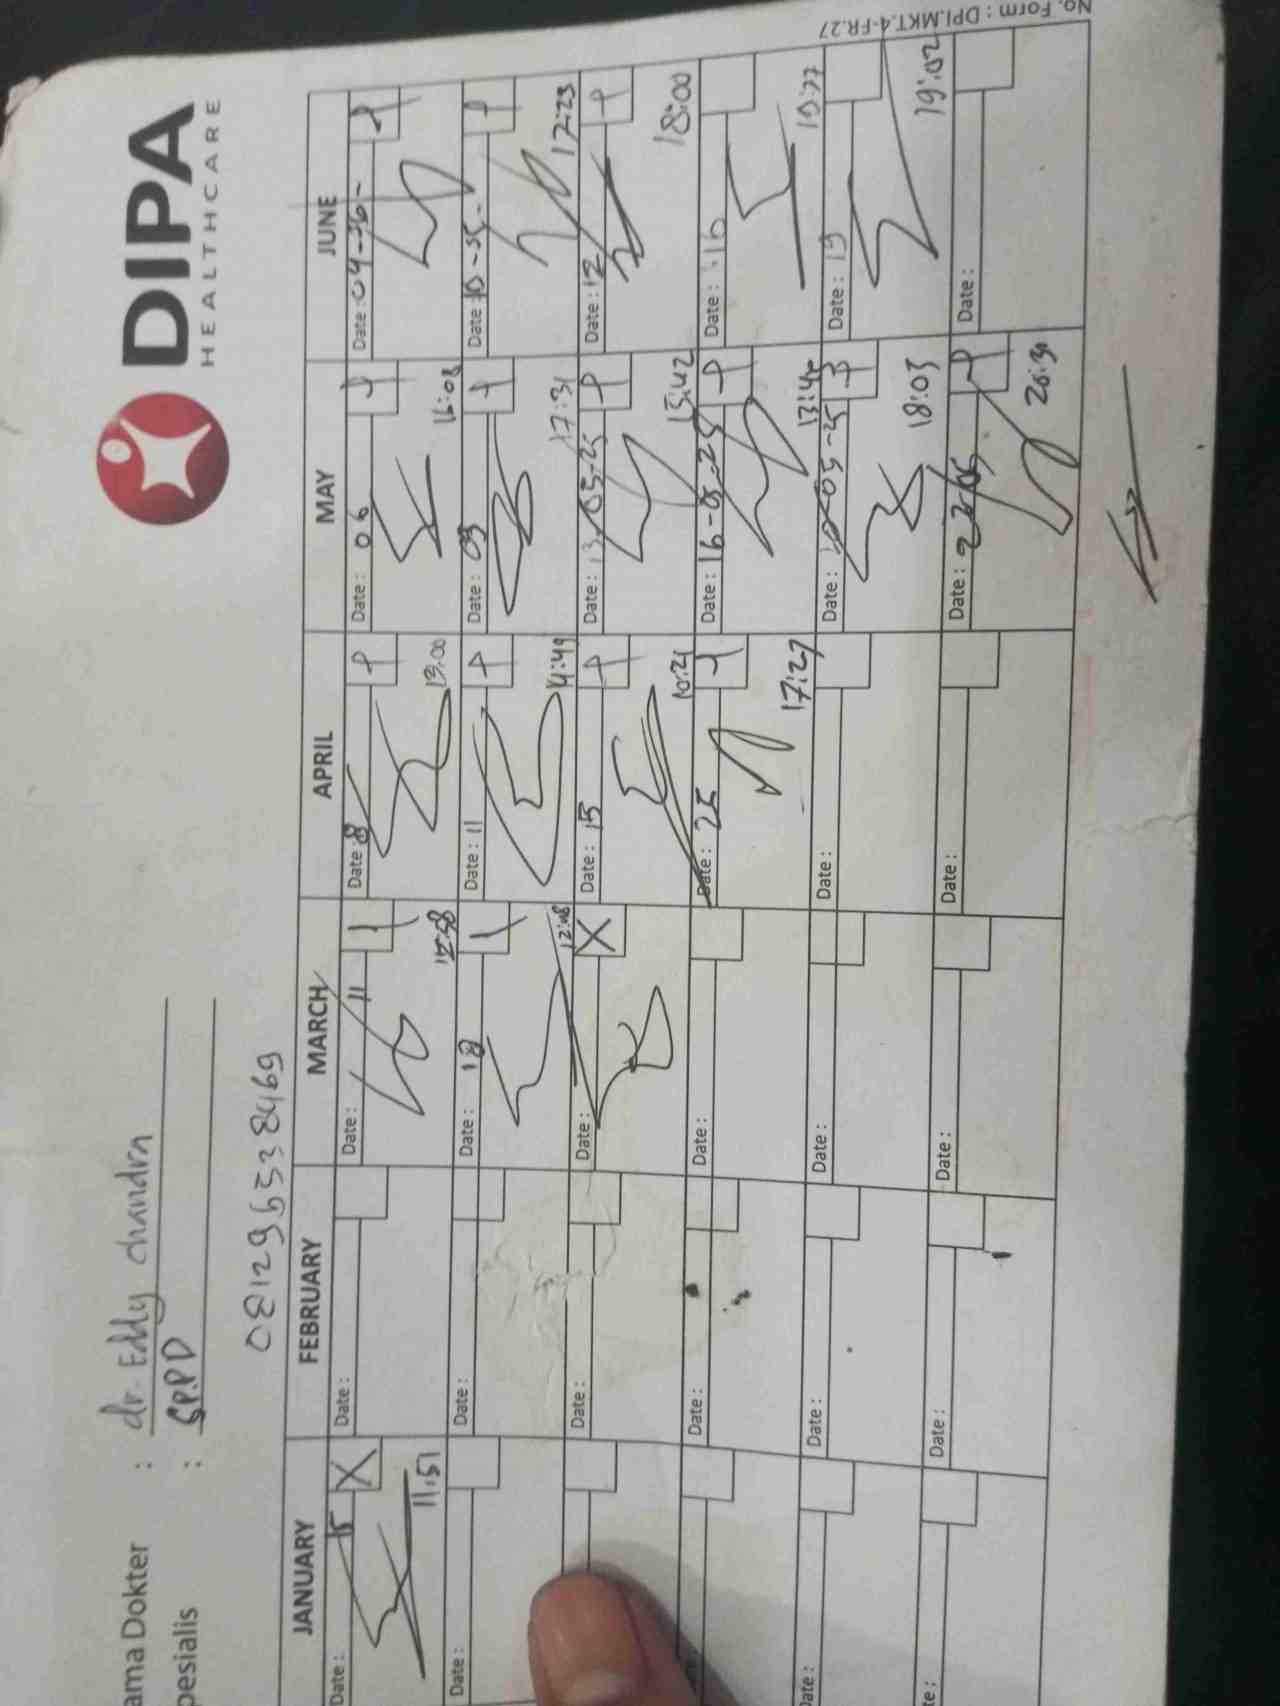 DIPA
HEALTHCARE
ama Dokter : dr. Eddy Chandra
pesialis : SP.PD
081296538469
JANUARY FEBRUARY MARCH APRIL MAY JUNE
Date: 15 Date: Date: 11 Date: 8 Date: 06 Date: 04-06-
11:51 12:58 13:00 16:08
Date: Date: Date: 18 Date: 11 Date: 09 Date: 10-
12:48 14:49 17:31 17:23
Date: Date: Date: 15 Date: 13-05-25 Date: 12
X 10:21 15:42 18:00
Date: Date: Date: 25 Date: 16-05-25 Date: 16
17:27 13:40
Date: Date: Date: Date: Date: -05-25 Date: 19
18:03 19:02
te: Date: Date: Date: Date: Date:
No. Form : DPI.MKT.4-FR.27